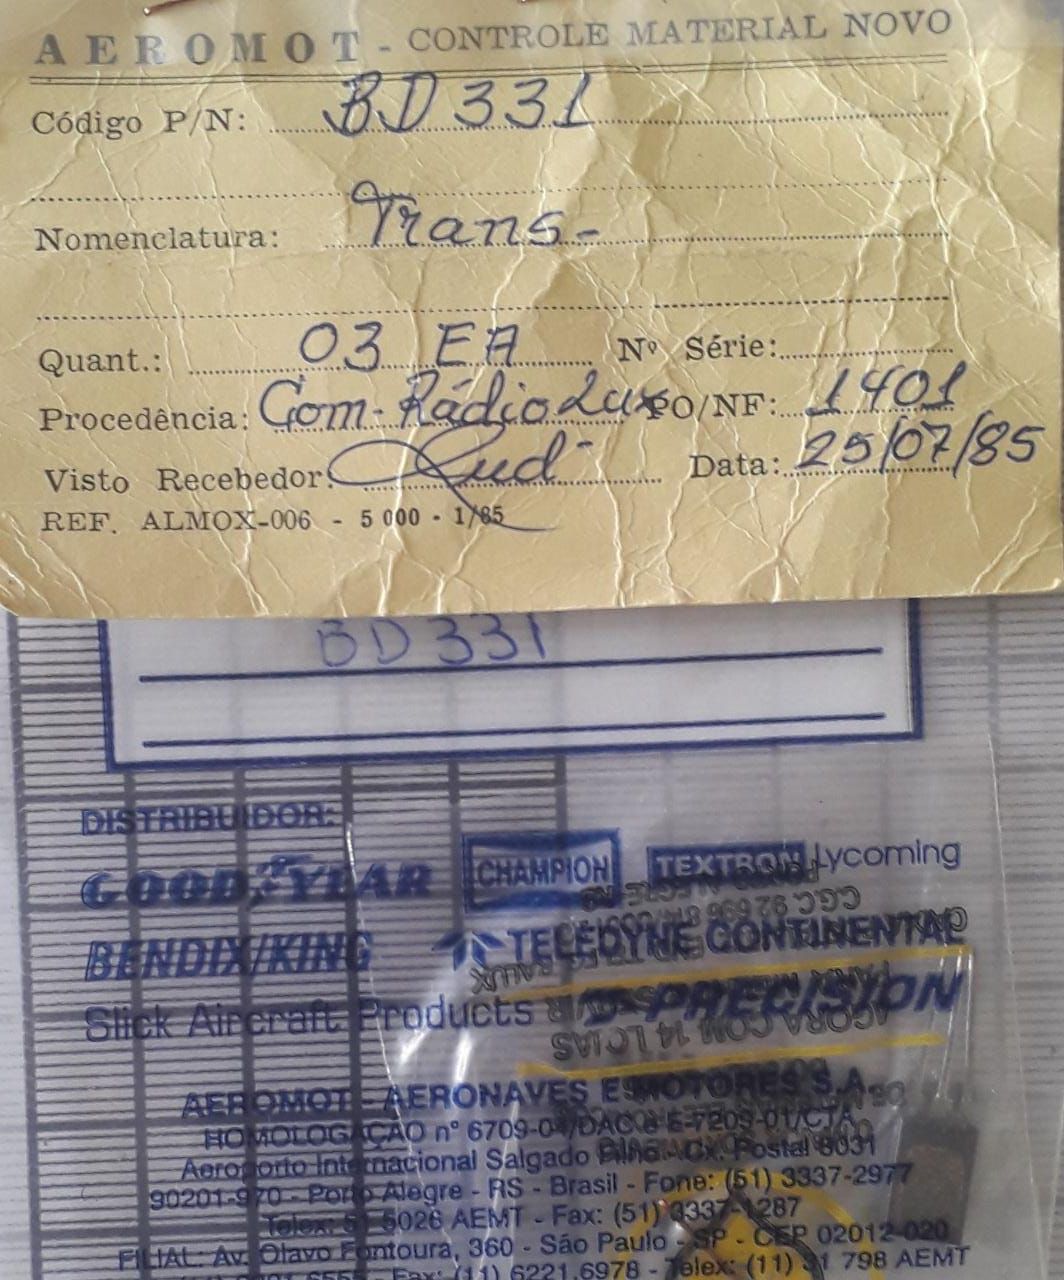 AEROMOT - CONTROLE MATERIAL NOVO
Código P/N: BD 331
Nomenclatura: Trans-
Quant.: 03 EA Nº Série:
Procedência: Com. Rádio Lux PO/NF: 1401
Visto Recebedor: Data: 25/07/85
REF. ALMOX-006 - 5 000 - 1/85
BD 331
DISTRIBUIDOR:
GOODYEAR CHAMPION TEXTRON Lycoming
BENDIX/KING TELEDYNE CONTINENTAL
Slick Aircraft Products PRECISION
AGORA COM 14 LOJAS
AEROMOT - AERONAVES E MOTORES S.A.
HOMOLOGAÇÃO nº 6709-04/DAC e E-7209-01/CTA
Aeroporto Internacional Salgado Filho - Cx. Postal 8031
90201-970 - Porto Alegre - RS - Brasil - Fone: (51) 3337-2977
Telex: 5026 AEMT - Fax: (51) 3337-1287
FILIAL: Av. Olavo Fontoura, 360 - São Paulo - SP - CEP 02012-020
Fax: (11) 6221.6978 - Telex: (11) 798 AEMT